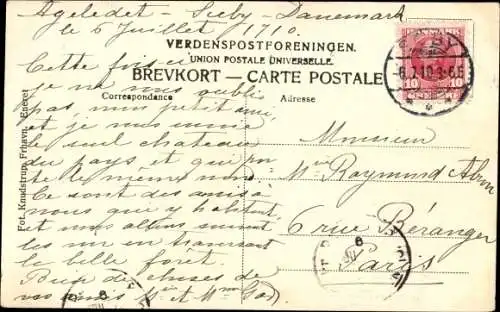 Sæby - Danemark
le 5 Juillet 1910.
VERDENSPOSTFORENINGEN.
UNION POSTALE UNIVERSELLE.
BREVKORT – CARTE POSTALE
Correspondance
Adresse
Cette fois ci
je ne vous oublie
pas, mon petit ami,
et je vous envoie
le seul château
du pays et qui
le même
Ce sont des amis à
nous qui y habitent,
et nous allons souvent
les voir en traversant
la belle forêt.
Bien des choses de
vos amis Mr et Mme
Monsieur
Raymond
6 rue Béranger
Paris
DANMARK
10 10
SÆBY
-6.7.10.3-6E
Fot. Knudstrup, Frhavn. Eneret